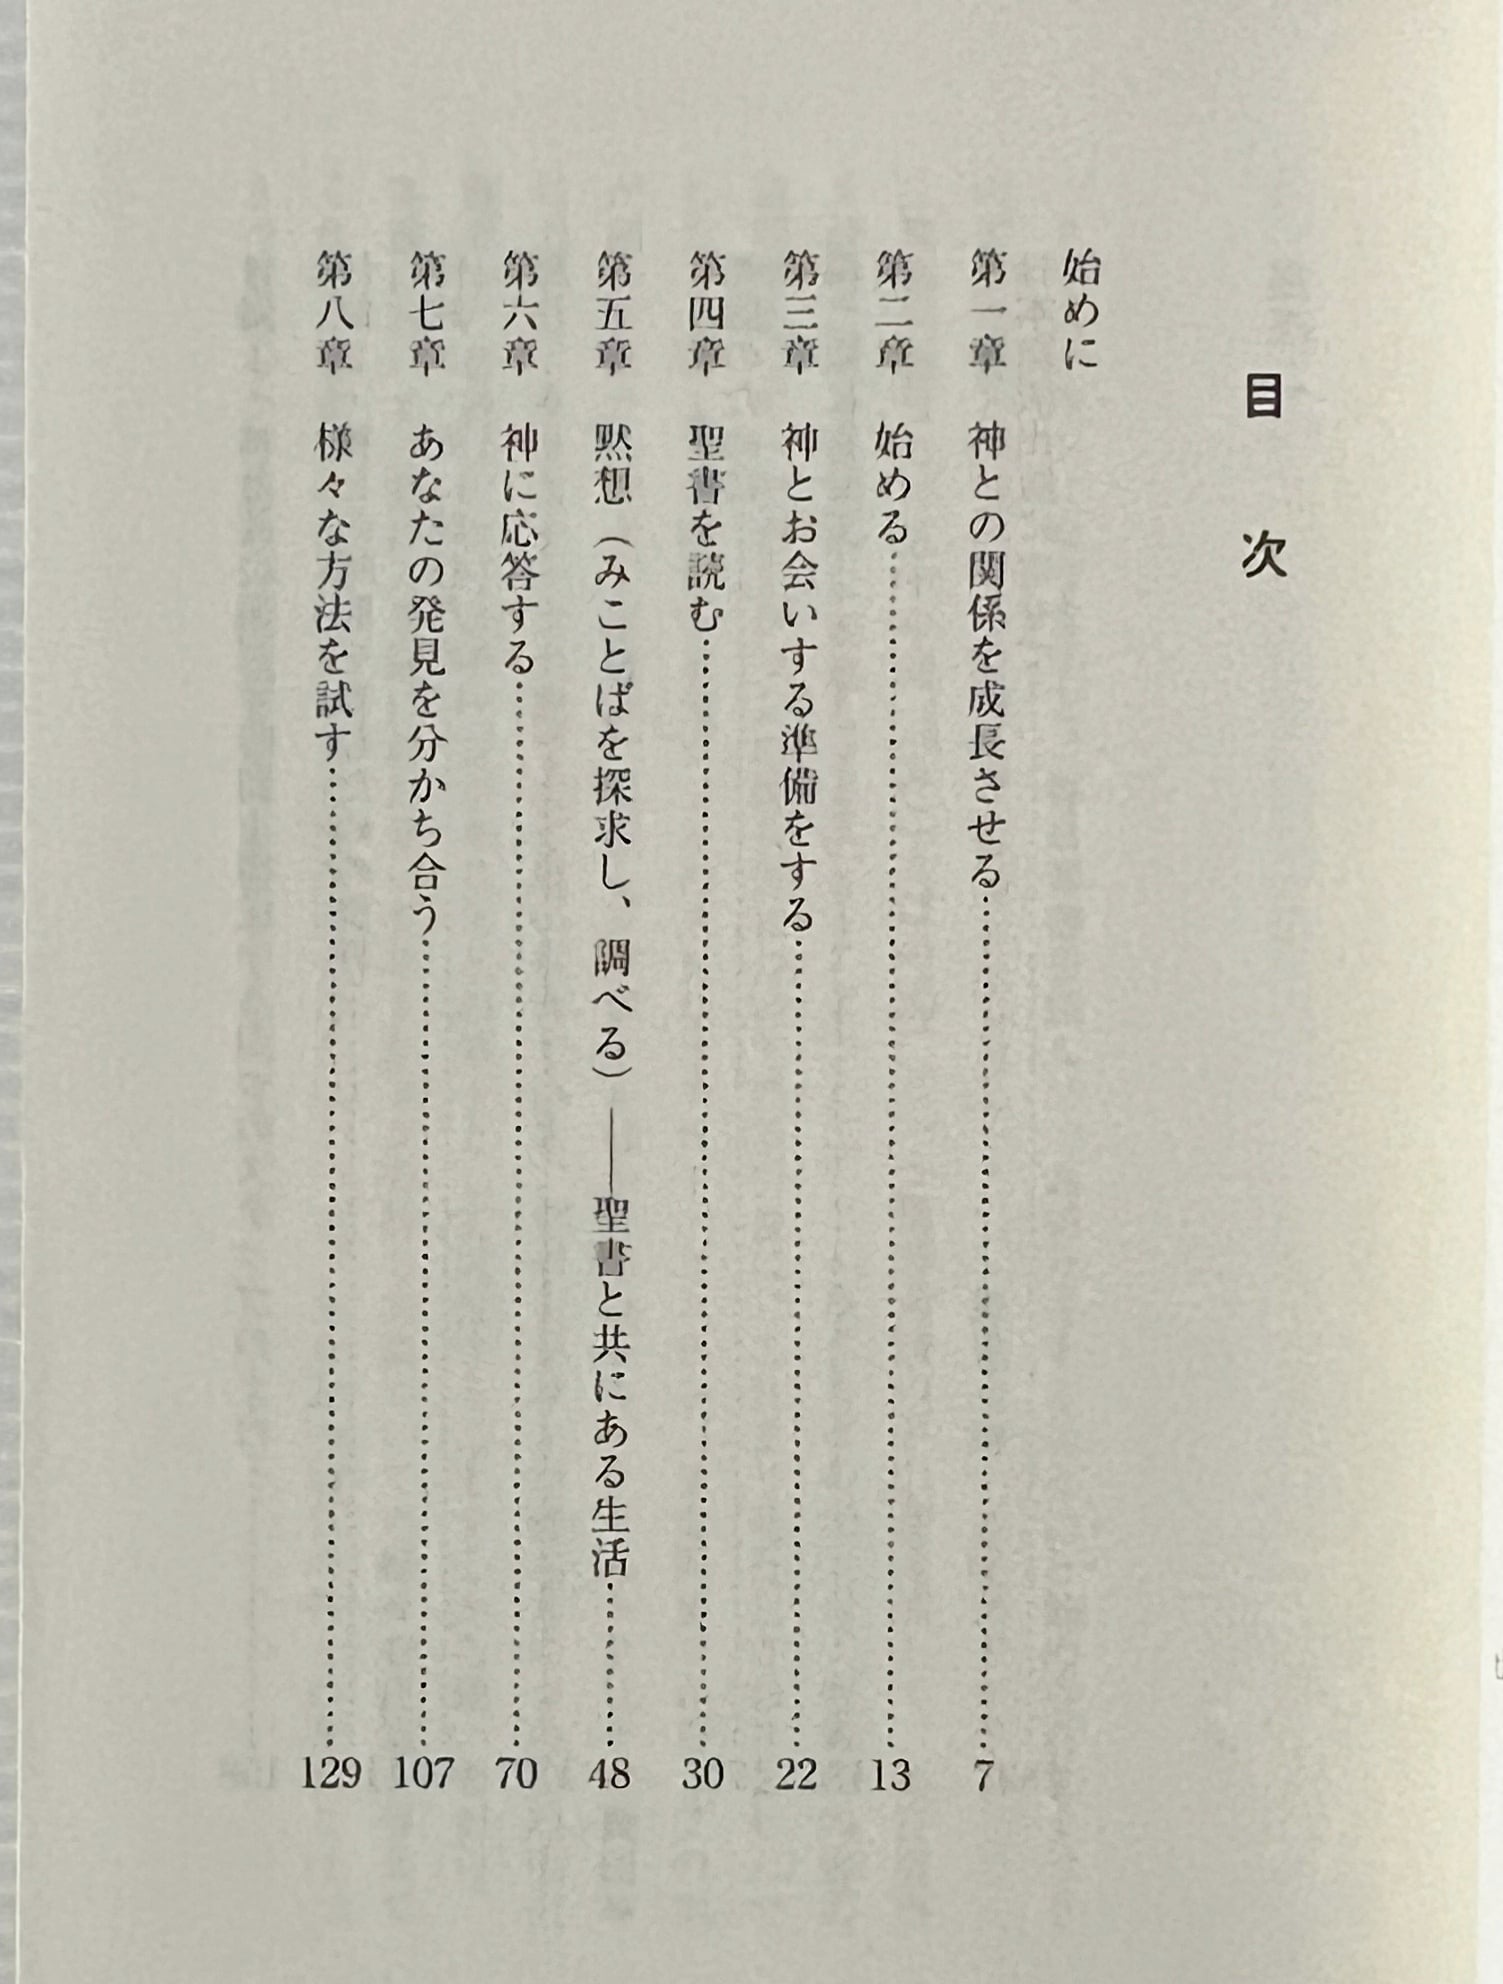 目次
始めに
第一章　神との関係を成長させる……7
第二章　始める……13
第三章　神とお会いする準備をする……22
第四章　聖書を読む……30
第五章　黙想（みことばを探求し、調べる）――聖書と共にある生活……48
第六章　神に応答する……70
第七章　あなたの発見を分かち合う……107
第八章　様々な方法を試す……129